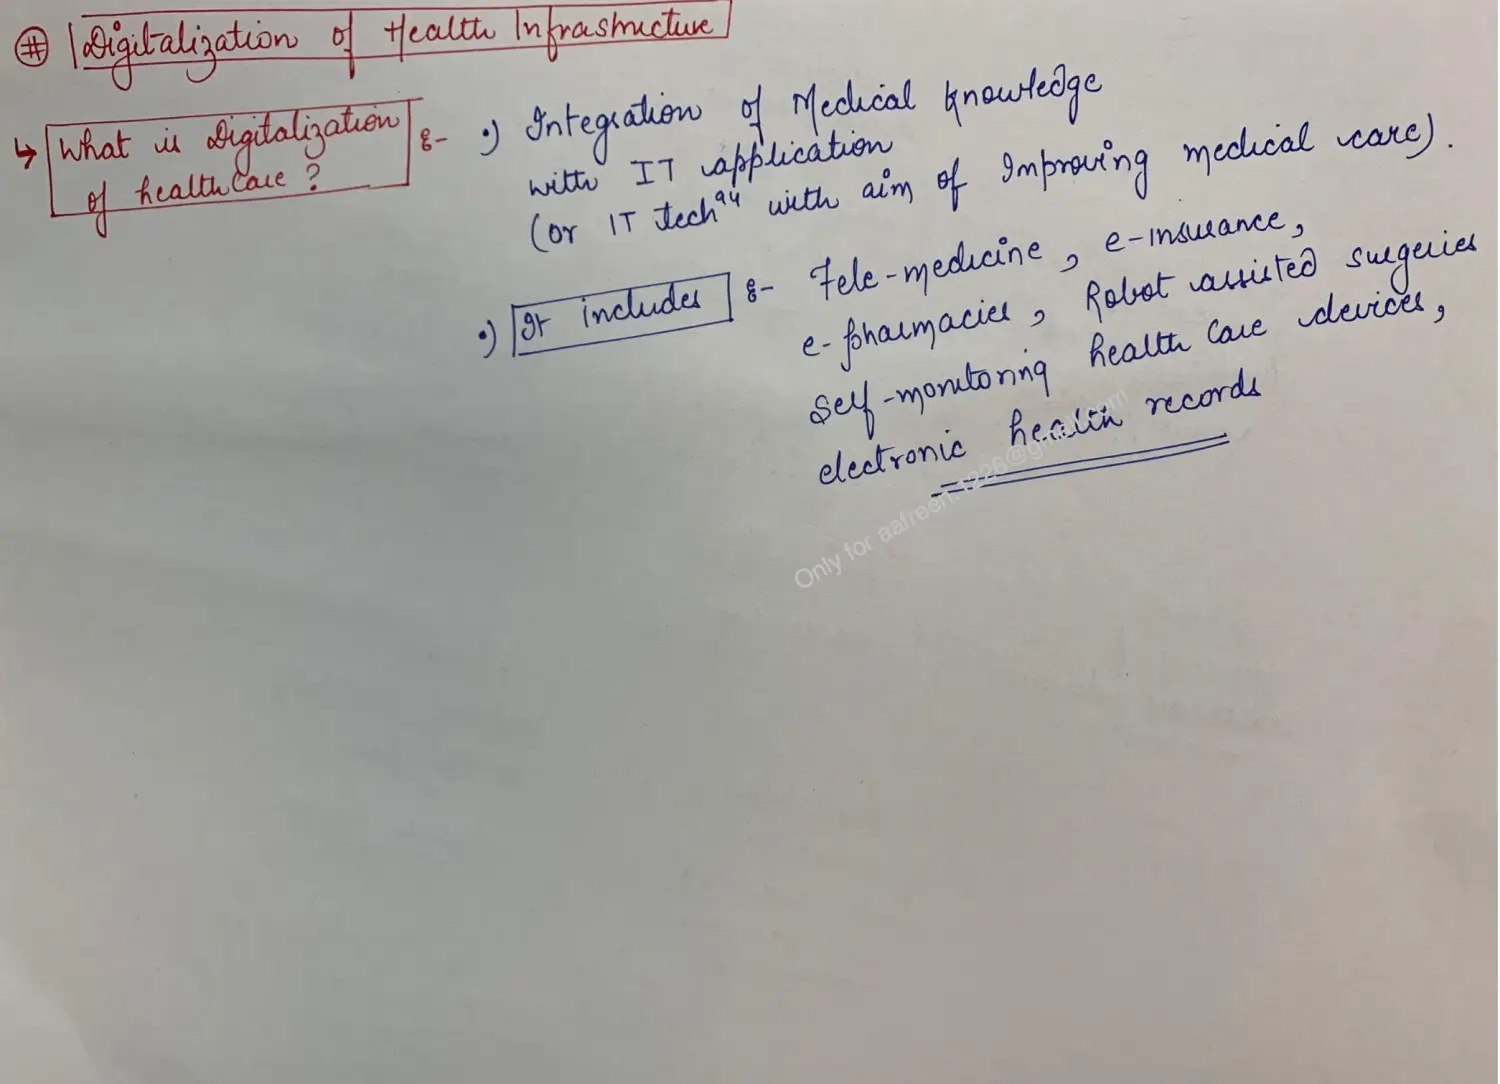 # Digitalization of Health Infrastructure
↳ What is Digitalization of healthcare? :-
•) Integration of Medical knowledge
with IT application
(or IT tech with aim of Improving medical care).
•) It includes :- Tele-medicine, e-insurance,
e-pharmacies, Robot assisted surgeries
Self-monitoring health care devices,
electronic health records
Only for aafreen.1226@gmail.com